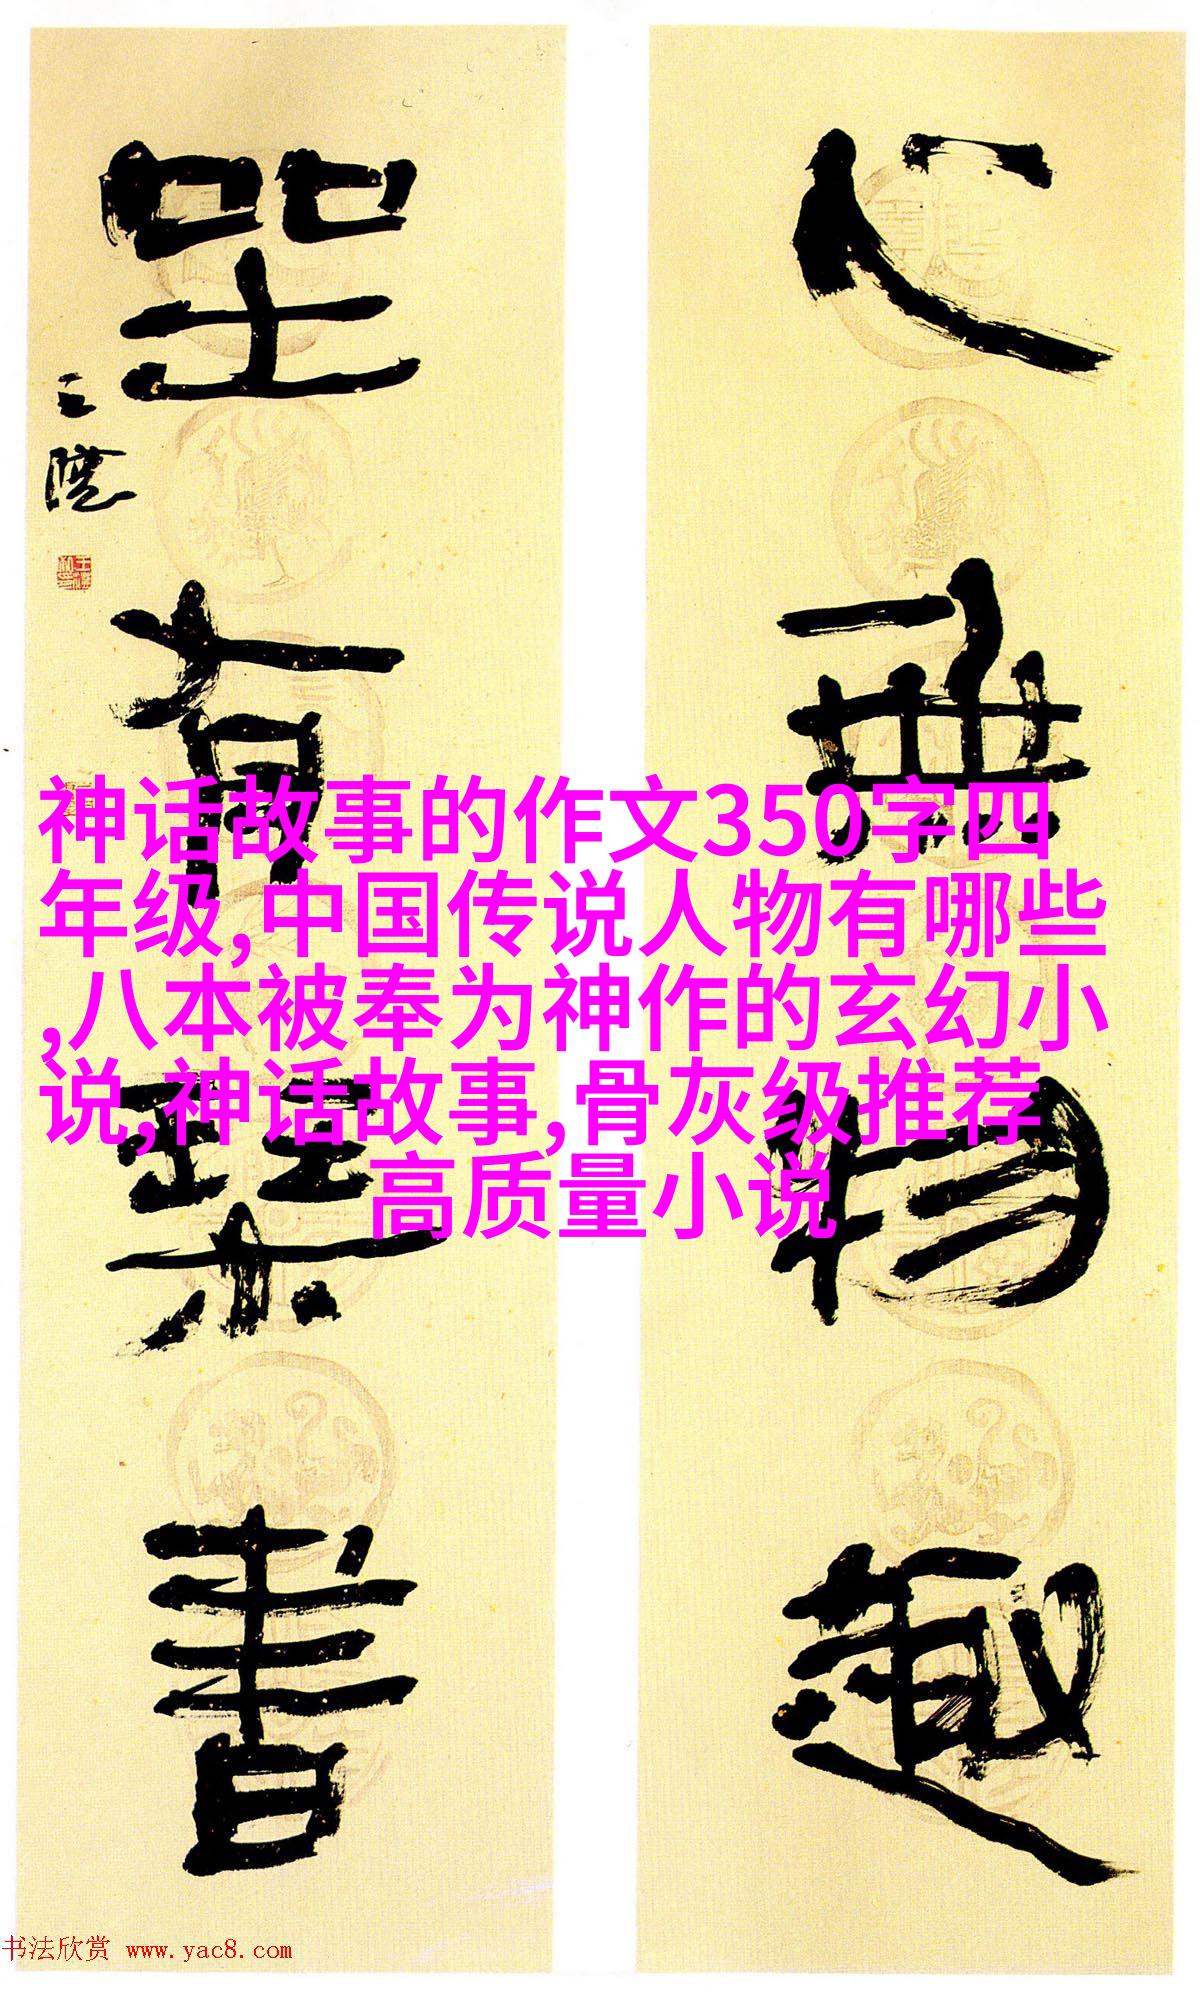 心無物趣
坐有琴書
王镛
神话故事的作文350字四
年级,中国传说人物有哪些
,八本被奉为神作的玄幻小
说,神话故事,骨灰级推荐
高质量小说
书法欣赏 www.yac8.com